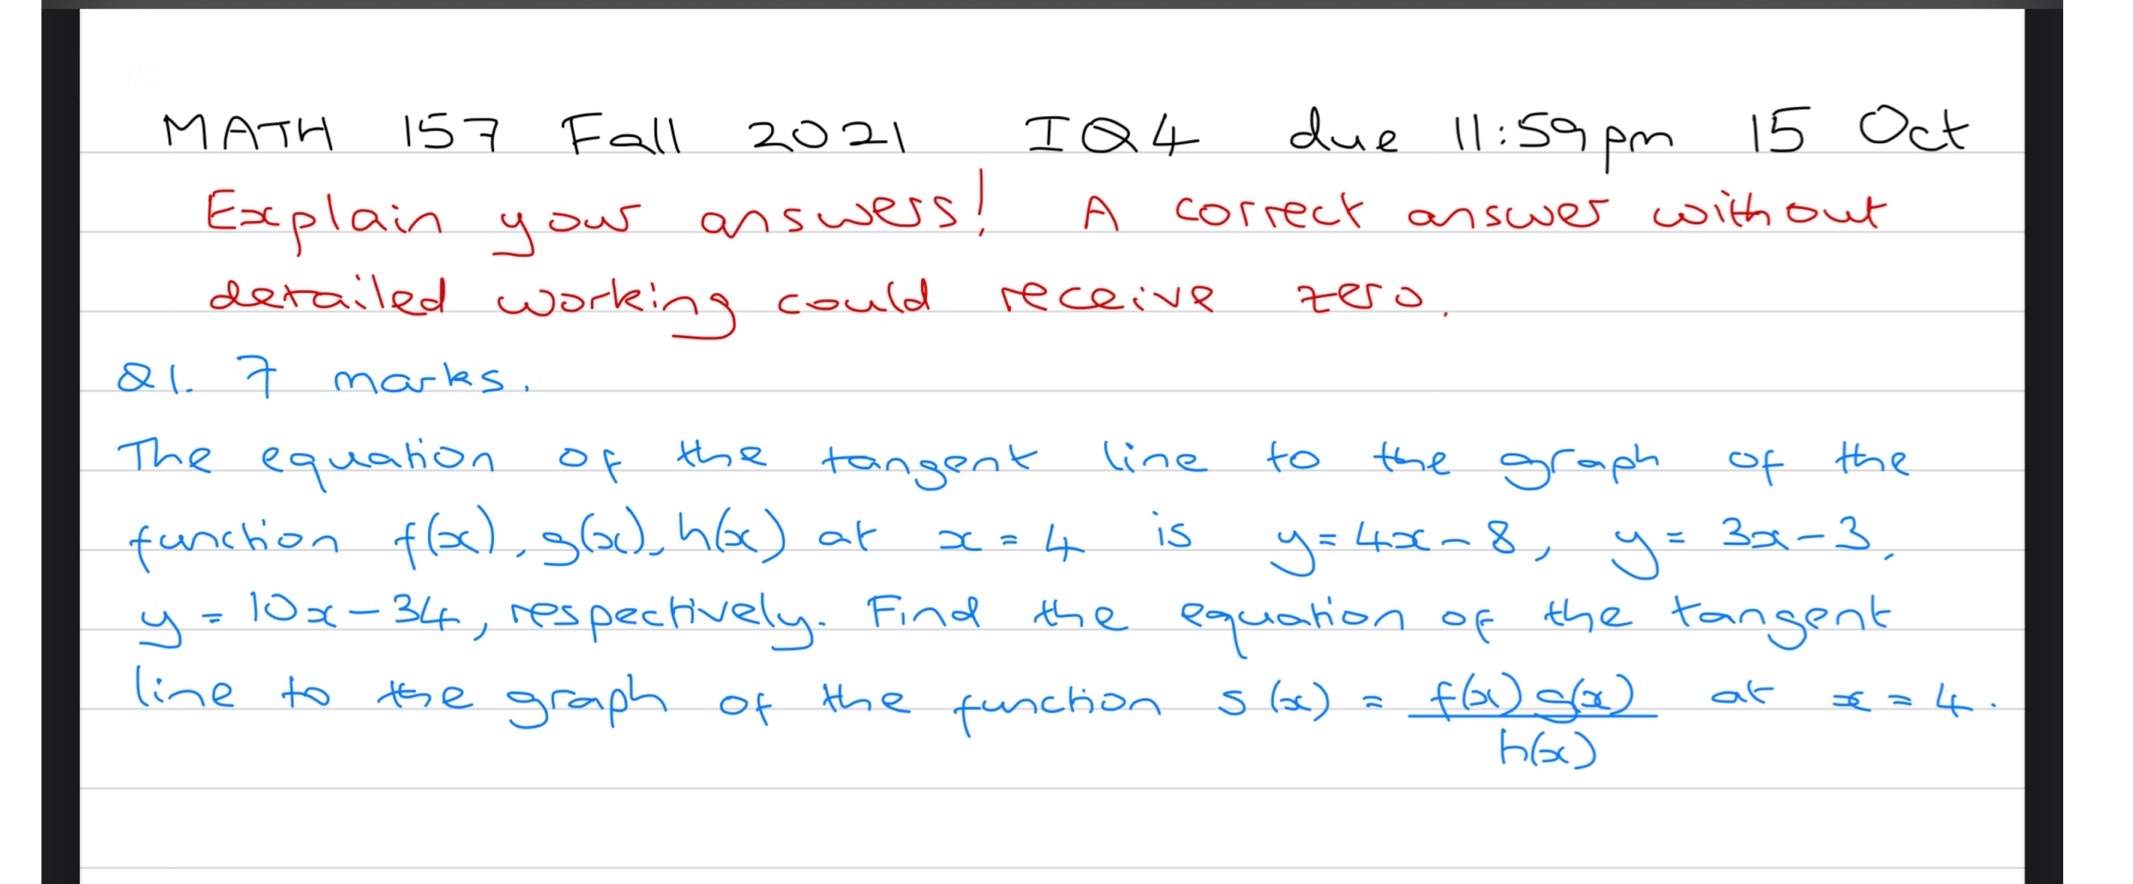 MATH 157 Fall 2021 IQ4 due 11:59pm 15 Oct
Explain your answers! A correct answer without
detailed working could receive zero.
Q1. 7 marks.
The equation of the tangent line to the graph of the
function f(x), g(x), h(x) at x = 4 is y = 4x - 8, y = 3x - 3,
y = 10x - 34, respectively. Find the equation of the tangent
line to the graph of the function s(x) = f(x) g(x) at x = 4.
h(x)